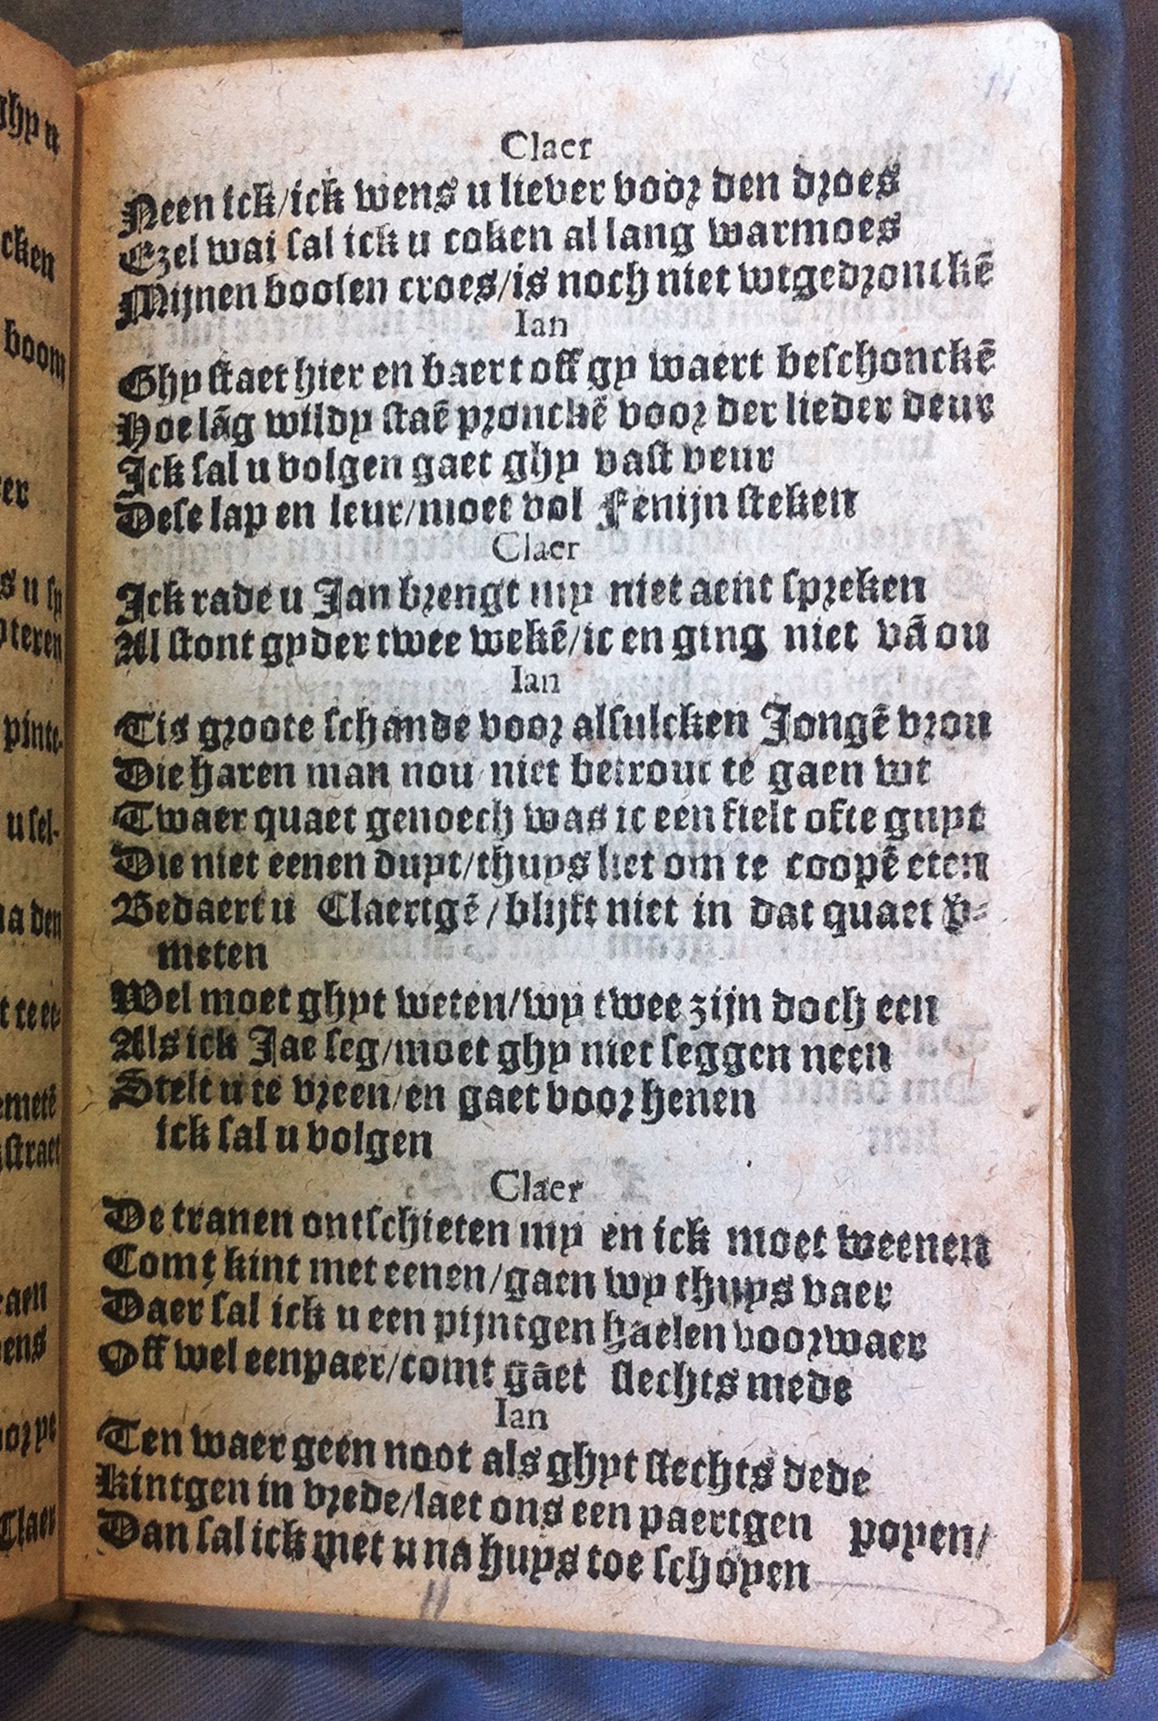 Claer
Neen ick/ick wens u liever voor den droes
Ezel wai sal ick u coken al lang warmoes
Mijnen boosen croes/is noch niet wtgedronckē
Ian
Ghy staet hier en baert off gy waert beschonckē
Hoe lāg wildy staē pronckē voor der lieder deur
Ick sal u volgen gaet ghy vast veur
Dese lap en leur/moet vol Fenijn steken
Claer
Ick rade u Jan brengt my niet aent spreken
Al stont gy der twee wekē/ic en ging niet vā ou
Ian
Tis groote schande voor alsulcken Jongē vrou
Die haren man nou niet betrout te gaen wt
Twaer quaet genoech was ic een fielt ofte guyt
Die niet eenen duyt/thuys liet om te coopē eten
Bedaert u Claertgē/blijft niet in dat quaet v-
meten
Wel moet ghyt weten/wy twee zijn doch een
Als ick Jae seg/moet ghy niet seggen neen
Stelt u te vreen/en gaet voor henen
ick sal u volgen
Claer
De tranen ontschieten my en ick moet weenen
Comt kint met eenen/gaen wy thuys vaer
Daer sal ick u een pijntgen haelen voorwaer
Off wel een paer/comt gaet slechts mede
Ian
Ten waer geen noot als ghyt slechts dede
Kintgen in vrede/laet ons een paertgen poyen/
Dan sal ick met u na huys toe schoyen
ghy u
cken
boom
er
s u sp
oteren
pinte-
u sel-
na den
t te ee-
emetē
straet
aen
ens
Claer
11
11